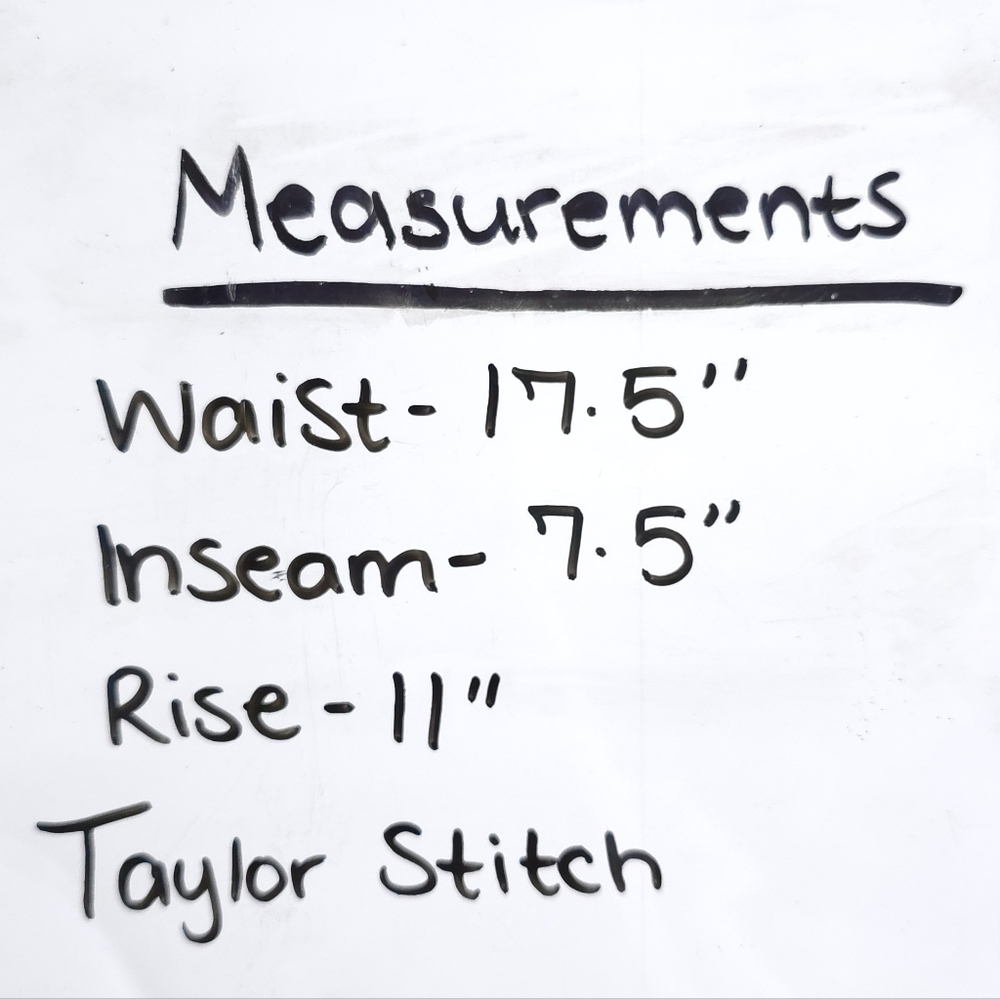 Measurements
Waist- 17.5"
Inseam- 7.5"
Rise - 11"
Taylor Stitch